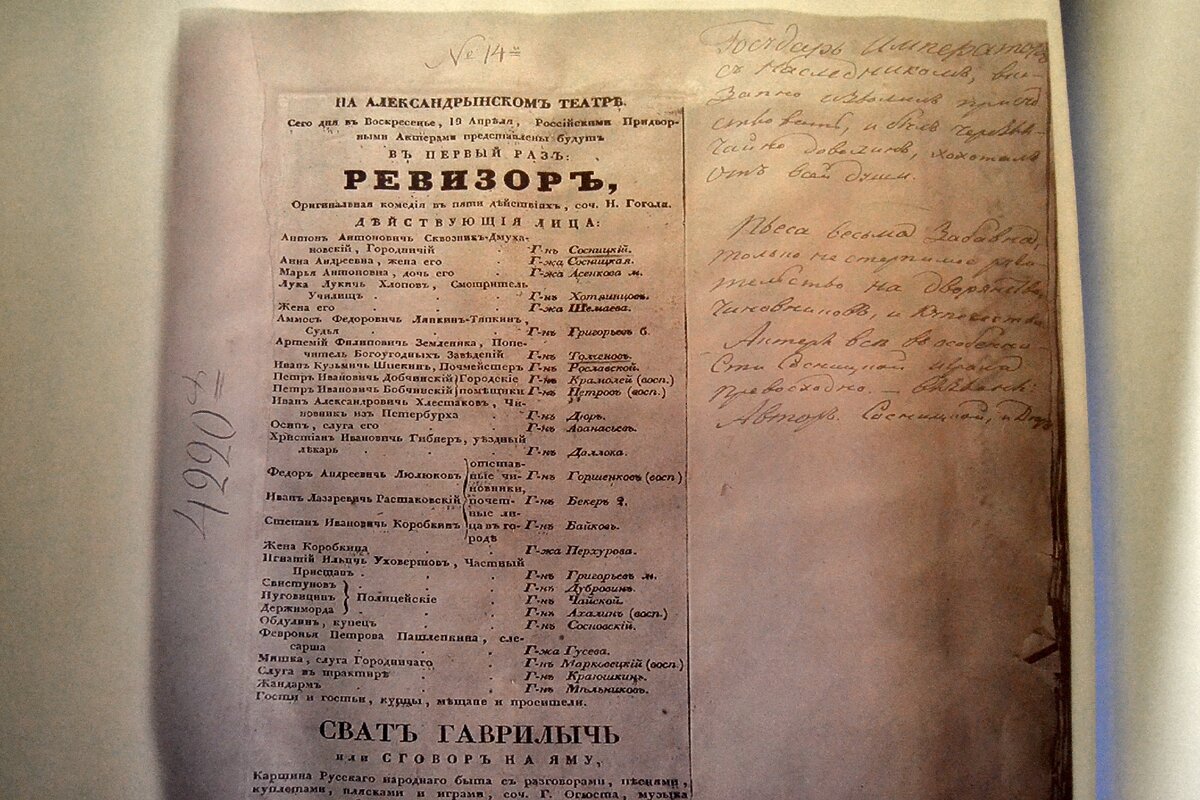 № 14й
НА АЛЕКСАНДРЫНСКОМЪ ТЕАТРѢ.
Сего дня въ Воскресенье, 19 Апрѣля, Россійскими Придвор-
ными Актерами представлены будутъ
ВЪ ПЕРВЫЙ РАЗЪ:
РЕВИЗОРЪ,
Оригинальная комедія въ пяти дѣйствіяхъ, соч. Н. Гоголя.
ДѢЙСТВУЮЩІЯ ЛИЦА:
Антонъ Антоновичь Сквозник-Дмуха-
новскій, Городничій . Г-нъ Сосницкій.
Анна Андреевна, жена его . Г-жа Сосницкая.
Марья Антоновна, дочь его . Г-жа Асенкова м.
Лука Лукичь Хлоповъ, Смотритель
Училищъ . . . Г-нъ Хотяинцовъ.
Жена его . . . Г-жа Шемаева.
Аммосъ Федоровичь Ляпкин-Тяпкинъ,
Судья . . . Г-нъ Григорьевъ б.
Артемій Филиповичь Земляника, Попе-
чишель Богоугодныхъ Заведеній Г-нъ Толченовъ.
Иванъ Кузьмичь Шпекинъ, Почмейстеръ Г-нъ Рославской.
Петръ Ивановичь Добчинскій) Городскіе Г-нъ Крамолей (восп.)
Петръ Ивановичь Бобчинскій) помѣщики Г-нъ Петровъ (восп.)
Иванъ Александровичь Хлестаковъ, Чи-
новникъ изъ Петербурха . Г-нъ Дюръ.
Осипъ, слуга его . . . Г-нъ Аѳанасьевъ.
Христіанъ Ивановичь Гибнеръ, уѣздный
лѣкарь . . . Г-нъ Даллока.
Федоръ Андреевичь Люлюковъ отстав-
ные чи- Г-нъ Горшенковъ (восп)
новники,
Иванъ Лазаревичь Растаковскій почет- Г-нъ Бекеръ 2.
ные ли-
Степанъ Ивановичь Коробкинъ ца въ го- Г-нъ Байковъ.
родѣ
Жена Коробкина . . Г-жа Перхурова.
Игнатій Ильичь Уховертовъ, Частный
Приставъ . . . Г-нъ Григорьевъ м.
Свистуновъ . . . Г-нъ Дубровинъ.
Пуговицинъ } Полицейскіе . Г-нъ Чайской.
Держиморда . . Г-нъ Ахалинъ (восп.)
Обдулинъ, купецъ . . Г-нъ Сосновскій.
Февронья Петрова Пашлепкина, сле-
сарша . . . Г-жа Гусева.
Мишка, слуга Городничаго . Г-нъ Марковецкій (восп.)
Слуга въ трактирѣ . . Г-нъ Краюшкинъ.
Жандармъ . . . Г-нъ Мѣльниковъ.
Гости и гостьи, купцы, мѣщане и просители.
СВАТЪ ГАВРИЛЫЧЬ
или СГОВОРЪ НА ЯМУ,
Картина Русскаго народнаго быта съ разговорами, пѣснями,
куплетами, плясками и играми, соч. Г. Огюста, музыка
Государь Императоръ
съ Наслѣдникомъ, вне-
запно изволилъ присут
ствовать, и былъ чрезвы-
чайно доволенъ, хохоталъ
отъ всей души.
Пьеса весьма забавна,
только не стерпимое руга
тельство на дворянъ,
чиновниковъ, и купечество
Актеры все въ особенно-
сти Сосницкой играли
превосходно
Авторъ. Сосницкой, и Дюръ
4220